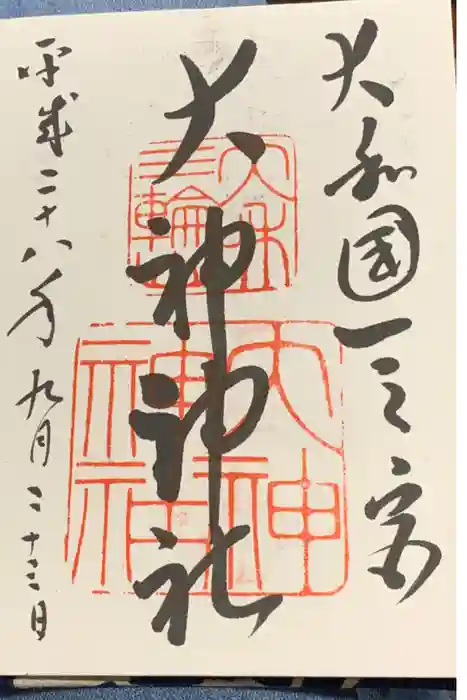 大和國一之宮
大神神社
平成二十八年九月二十三日
大神
神社